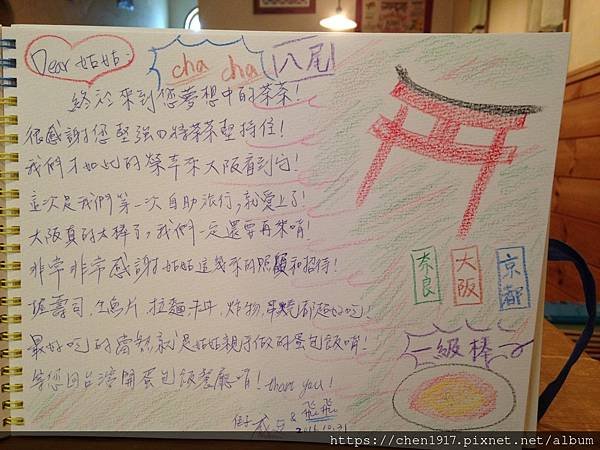 Dear 姑姑
cha cha
八尾
終於來到您夢想中的茶茶!
很感謝您堅強的將茶茶堅持住!
我們才如此的榮幸來大阪看到它!
這次是我們第一次自助旅行,就愛上了!
大阪真的太棒了,我們一定還要再來唷!
非常非常感謝姑姑這幾天的照顧和招待!
握壽司,生魚片,拉麵,牛丼,炸物,串燒都超好吃!
最好吃的當然就是姑姑親手做的蛋包飯唷!
等您回台灣開蛋包飯餐廳唷! thank you!
&飛飛
2016.10.31
奈良
大阪
京都
一級棒
https://chen1917.pixnet.net/album